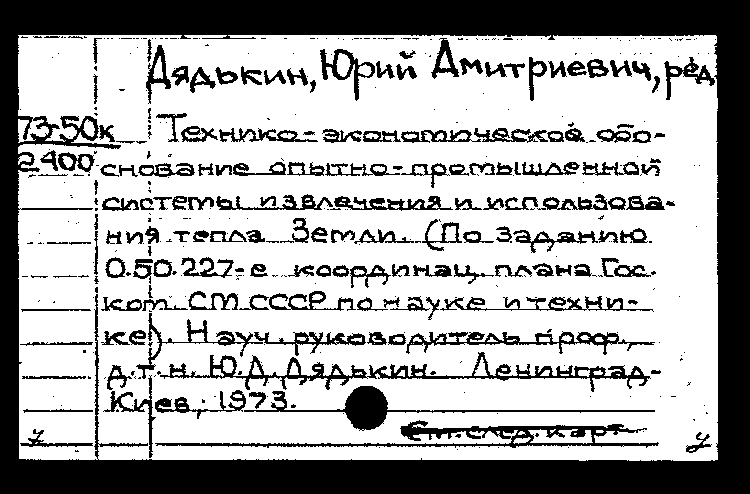 Дядькин, Юрий Дмитриевич, ред.
73-50к
2400
Технико-экономическое обо-
снование опытно-промышленной
системы извлечения и использова-
ния тепла Земли. (По заданию
0.50.227-е координац. плана Гос.
ком. СМ СССР по науке и техни-
ке). Науч. руководитель проф.,
д.т.н. Ю.Д. Дядькин. Ленинград-
Киев, 1973.
См. след. карт